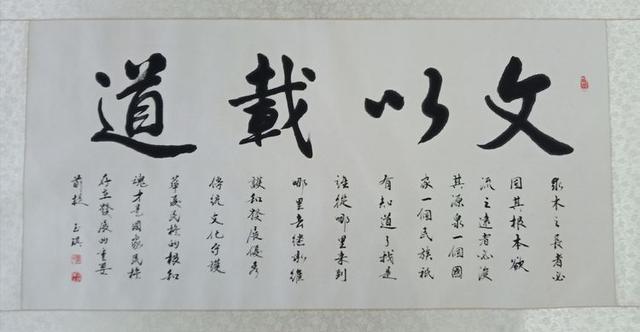 文以載道
求木之長者必
固其根本欲
流之遠者必浚
其源泉一個國
家一個民族祇
有知道了我是
誰從哪里來到
哪里去继承維
護和發展優秀
傳統文化守護
華夏民族的根和
魂才是國家民族
存在發展的重要
前提 玉琪